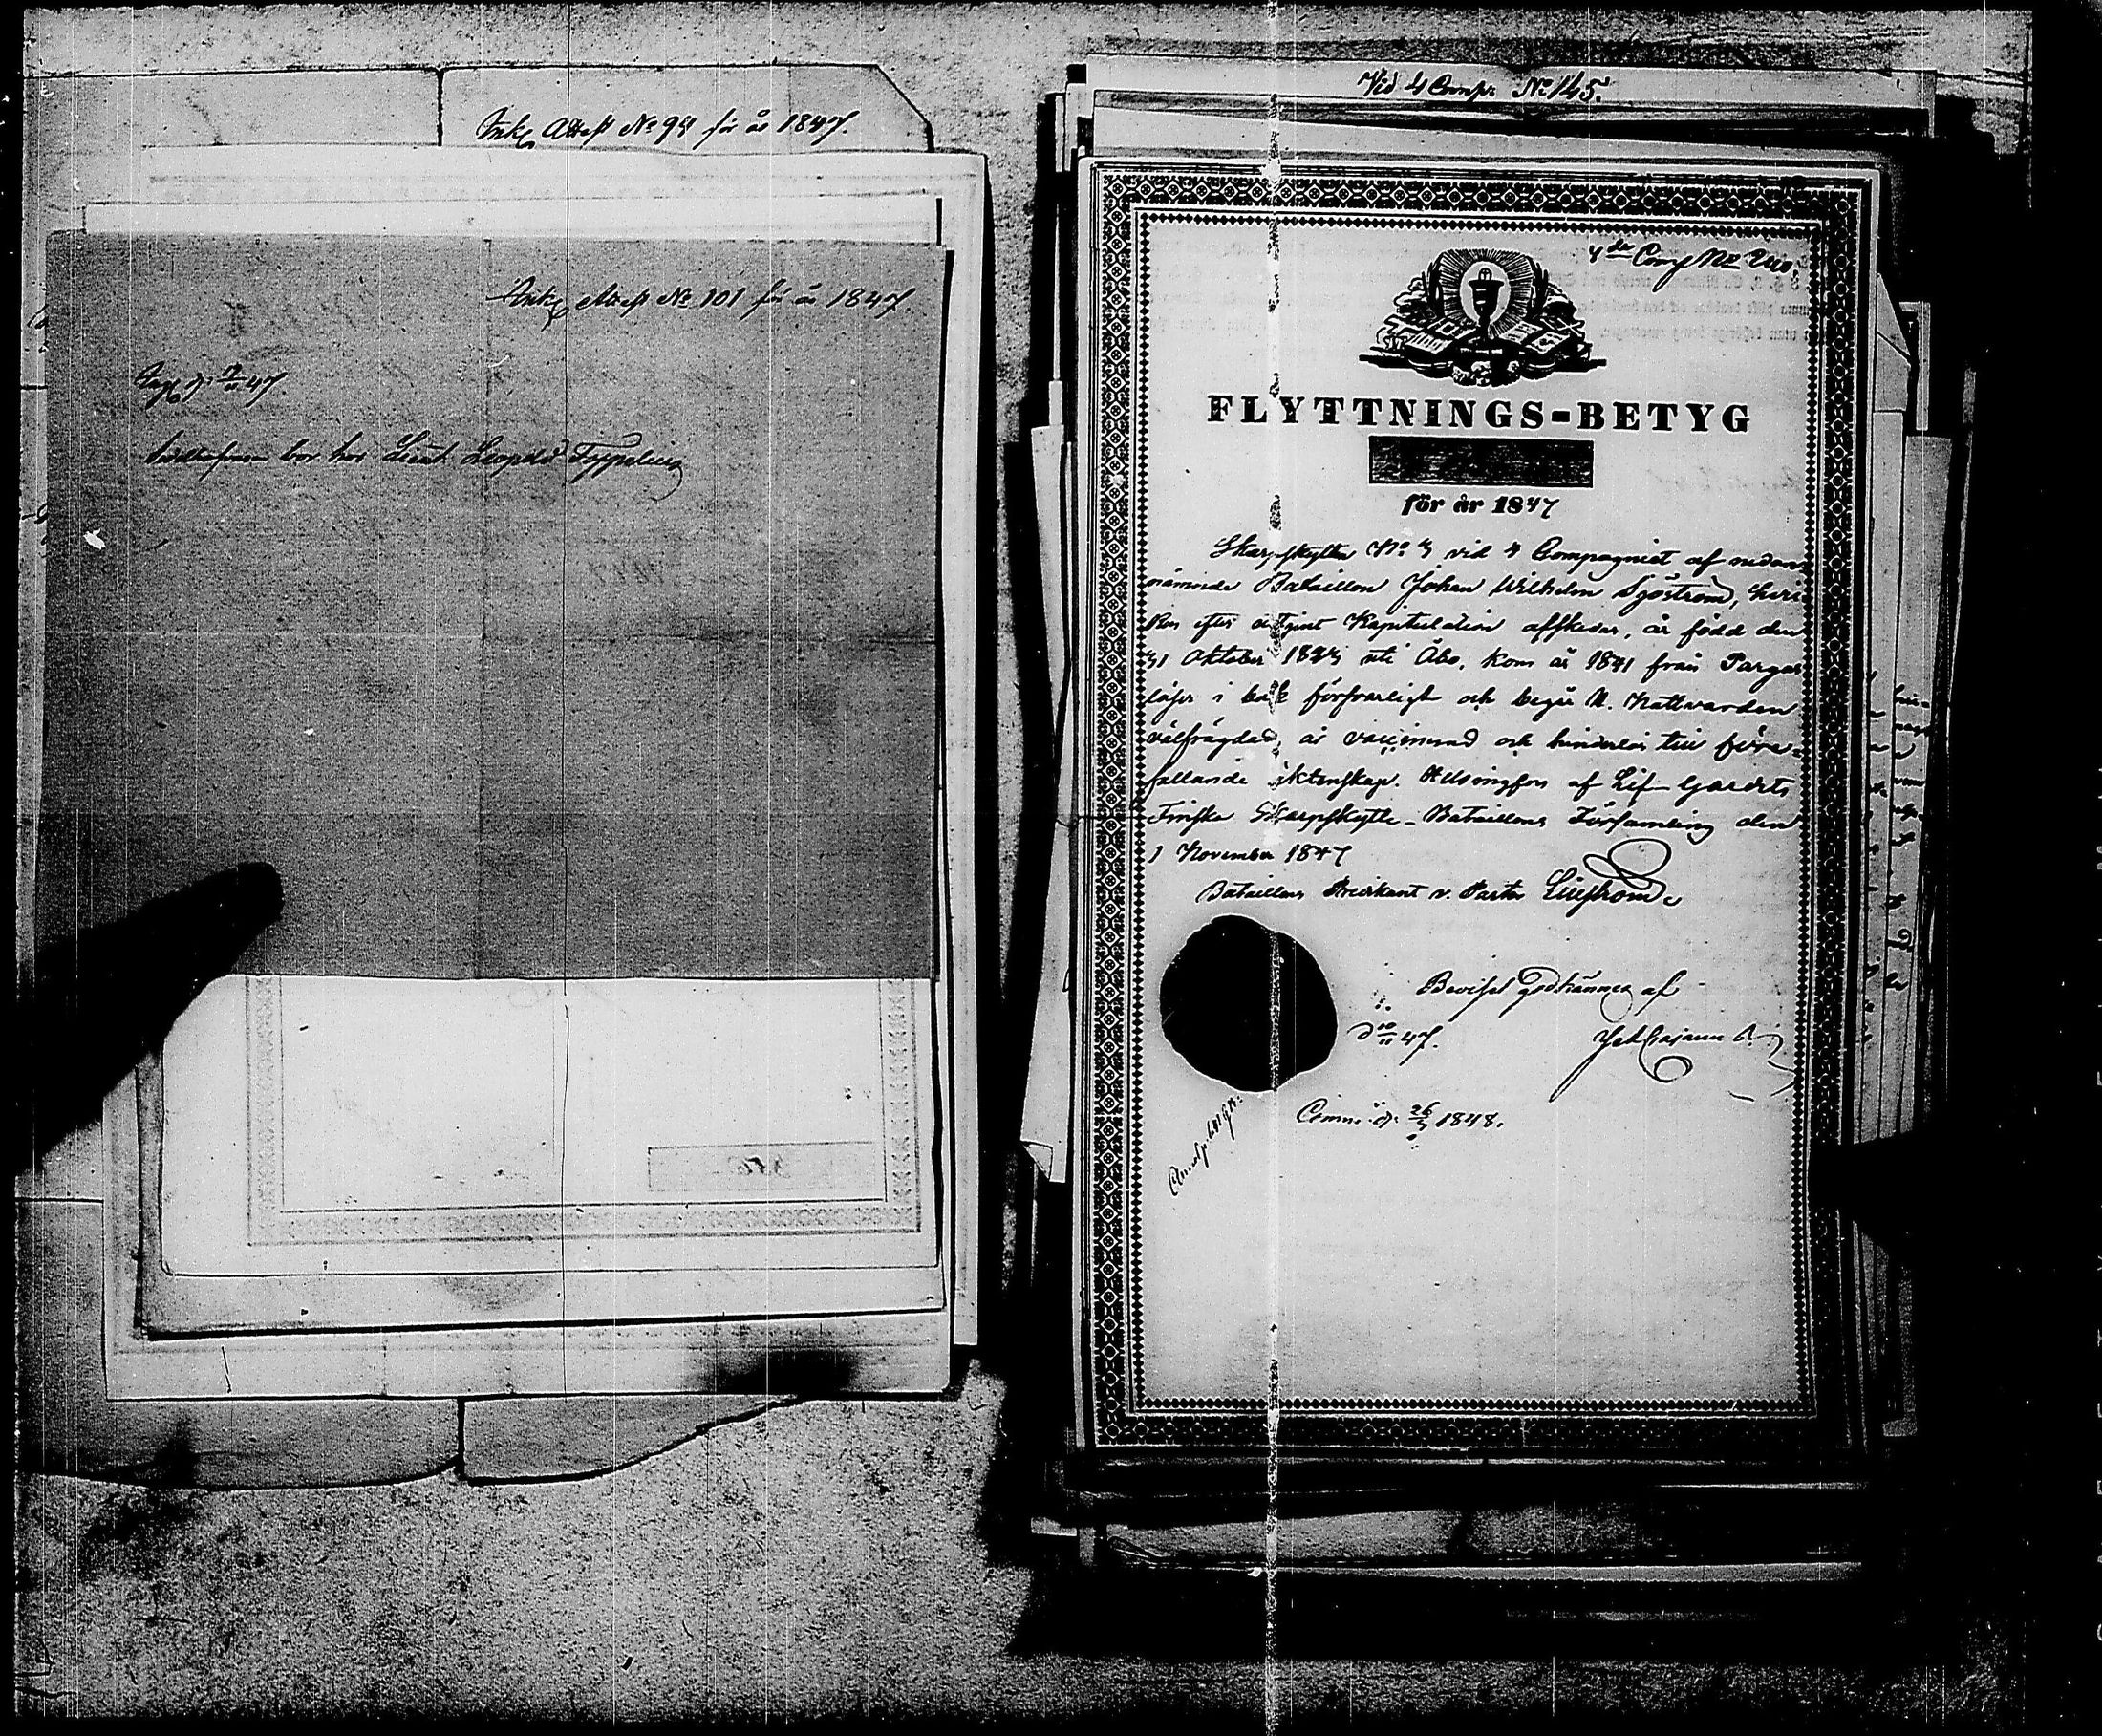 Ink. Attest No 99 för år 1847.
Ink. Attest No 101 för år 1847.
47.
bor hos Lieut. Leopold
Vid 4 Comp. No 145.
4de Comp No
FLYTTNINGS-BETYG
för år 1847
Skarpskytten No 3 vid 4 Compagniet af nedan-
nämnde Bataillon Johan Wilhelm Sjöström, hvil-
ken efter uttjent Kapitulation affskedas, är född den
31 Oktober 1823 uti Åbo, kom år 1841 från Pargas
läser i bok försvarligt och begår H. Nattvarden
välfrägdad, är vaccinerad och hinderlös till före-
fallande äktenskap. Helsingfors af Lif-Gardets
Finska Skarpskytte-Bataillons Församling den
1 November 1847
Bataillons Predikant v. Pastor
Beviset godkännes af
d 10/11 47.
d. 26/3 1848.